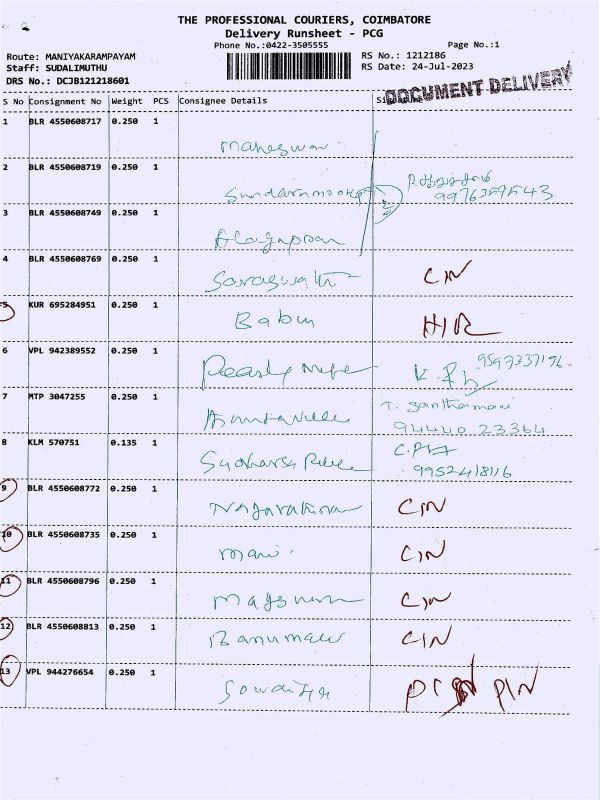 THE PROFESSIONAL COURIERS, COIMBATORE
Delivery Runsheet - PCG
Phone No.:0422-3505555 Page No.:1
Route: MANIYAKARAMPAYAM RS No.: 1212186
Staff: SUDALIMUTHU RS Date: 24-Jul-2023
DRS No.: DCJB121218601
DOCUMENT DELIVERY
S No Consignment No Weight PCS Consignee Details
1 BLR 4550608717 0.250 1
Maheswari
2 BLR 4550608719 0.250 1
Sundaramoorthy
3 BLR 4550608749 0.250 1
Alagappan
4 BLR 4550608769 0.250 1
Saraswathi CIN
5 KUR 695284951 0.250 1
Babu
6 VPL 942389552 0.250 1
9597337196
7 MTP 3047255 0.250 1
T. Santhamani
94440 23364
8 KLM 570751 0.135 1
9952418116
9 BLR 4550608772 0.250 1
CIN
10 BLR 4550608735 0.250 1
Mani CIN
11 BLR 4550608796 0.250 1
CIN
12 BLR 4550608813 0.250 1
Banumathi CIN
13 VPL 944276654 0.250 1
PIN